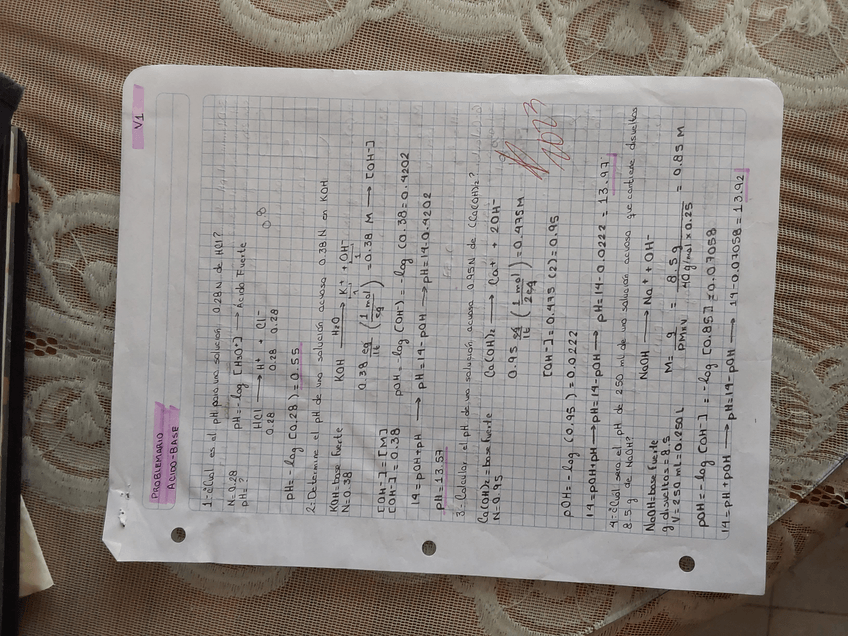 V1
PROBLEMARIO
ACIDO-BASE
1-¿Cuál es el pH para una solución 0.28 N de HCl?
N=0.28 pH=-log [H3O+] → Acido Fuerte
pH=?
HCl → H+ + Cl-
0.28 0.28 0.28
pH=-log (0.28)=0.55
2-Determine el pH de una solución acuosa 0.38 N en KOH
KOH=base fuerte KOH H2O → K+ + OH-
N=0.38 1 1
0.38 eq/lt (1 mol/eq) =0.38 M → [OH-]
[OH-]=[M]
[OH-]=0.38 pOH=-log [OH-]=-log (0.38=0.4202
14=pOH+pH → pH=14-pOH → pH=14-0.4202
pH=13.57
3-Calcular el pH de una solución acuosa 0.95N de (Ca(OH)2?
Ca(OH)2=base fuerte Ca(OH)2 → Ca+ + 2OH-
N=0.95
0.95 eq/lt (1 mol/2eq)=0.475M
[OH-]=0.475 (2)=0.95
pOH=-log (0.95)=0.0222
14=pOH+pH → pH=14-pOH → pH=14-0.0222=13.97
4-¿Cuál será el pH de 250 ml de una solución acuosa que contiene disueltos
8.5 g de NaOH?
NaOH=base fuerte NaOH → Na+ + OH-
g disueltos=8.5
V=250 ml=0.250 L M= g/PMxV = 8.5g/40 g/mol x 0.25 = 0.85 M
pOH=-log [OH-]=-log [0.85]=0.07058
14=pH+pOH → pH=14-pOH → 14-0.07058=13.92